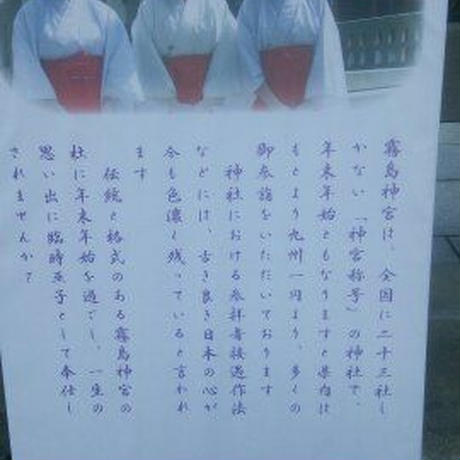 霧島神宮は、全国に二十三社し
かない「神宮称号」の神社で、
年末年始ともなりますと県内は
もとより九州一円より、多くの
御参詣をいただいております
神社における参拝者接遇作法
などには、古き良き日本の心が
今も色濃く残っていると言われ
ます
伝統と格式のある霧島神宮の
杜に年末年始を過ごし、一生の
思い出に臨時巫子として奉仕し
されませんか?